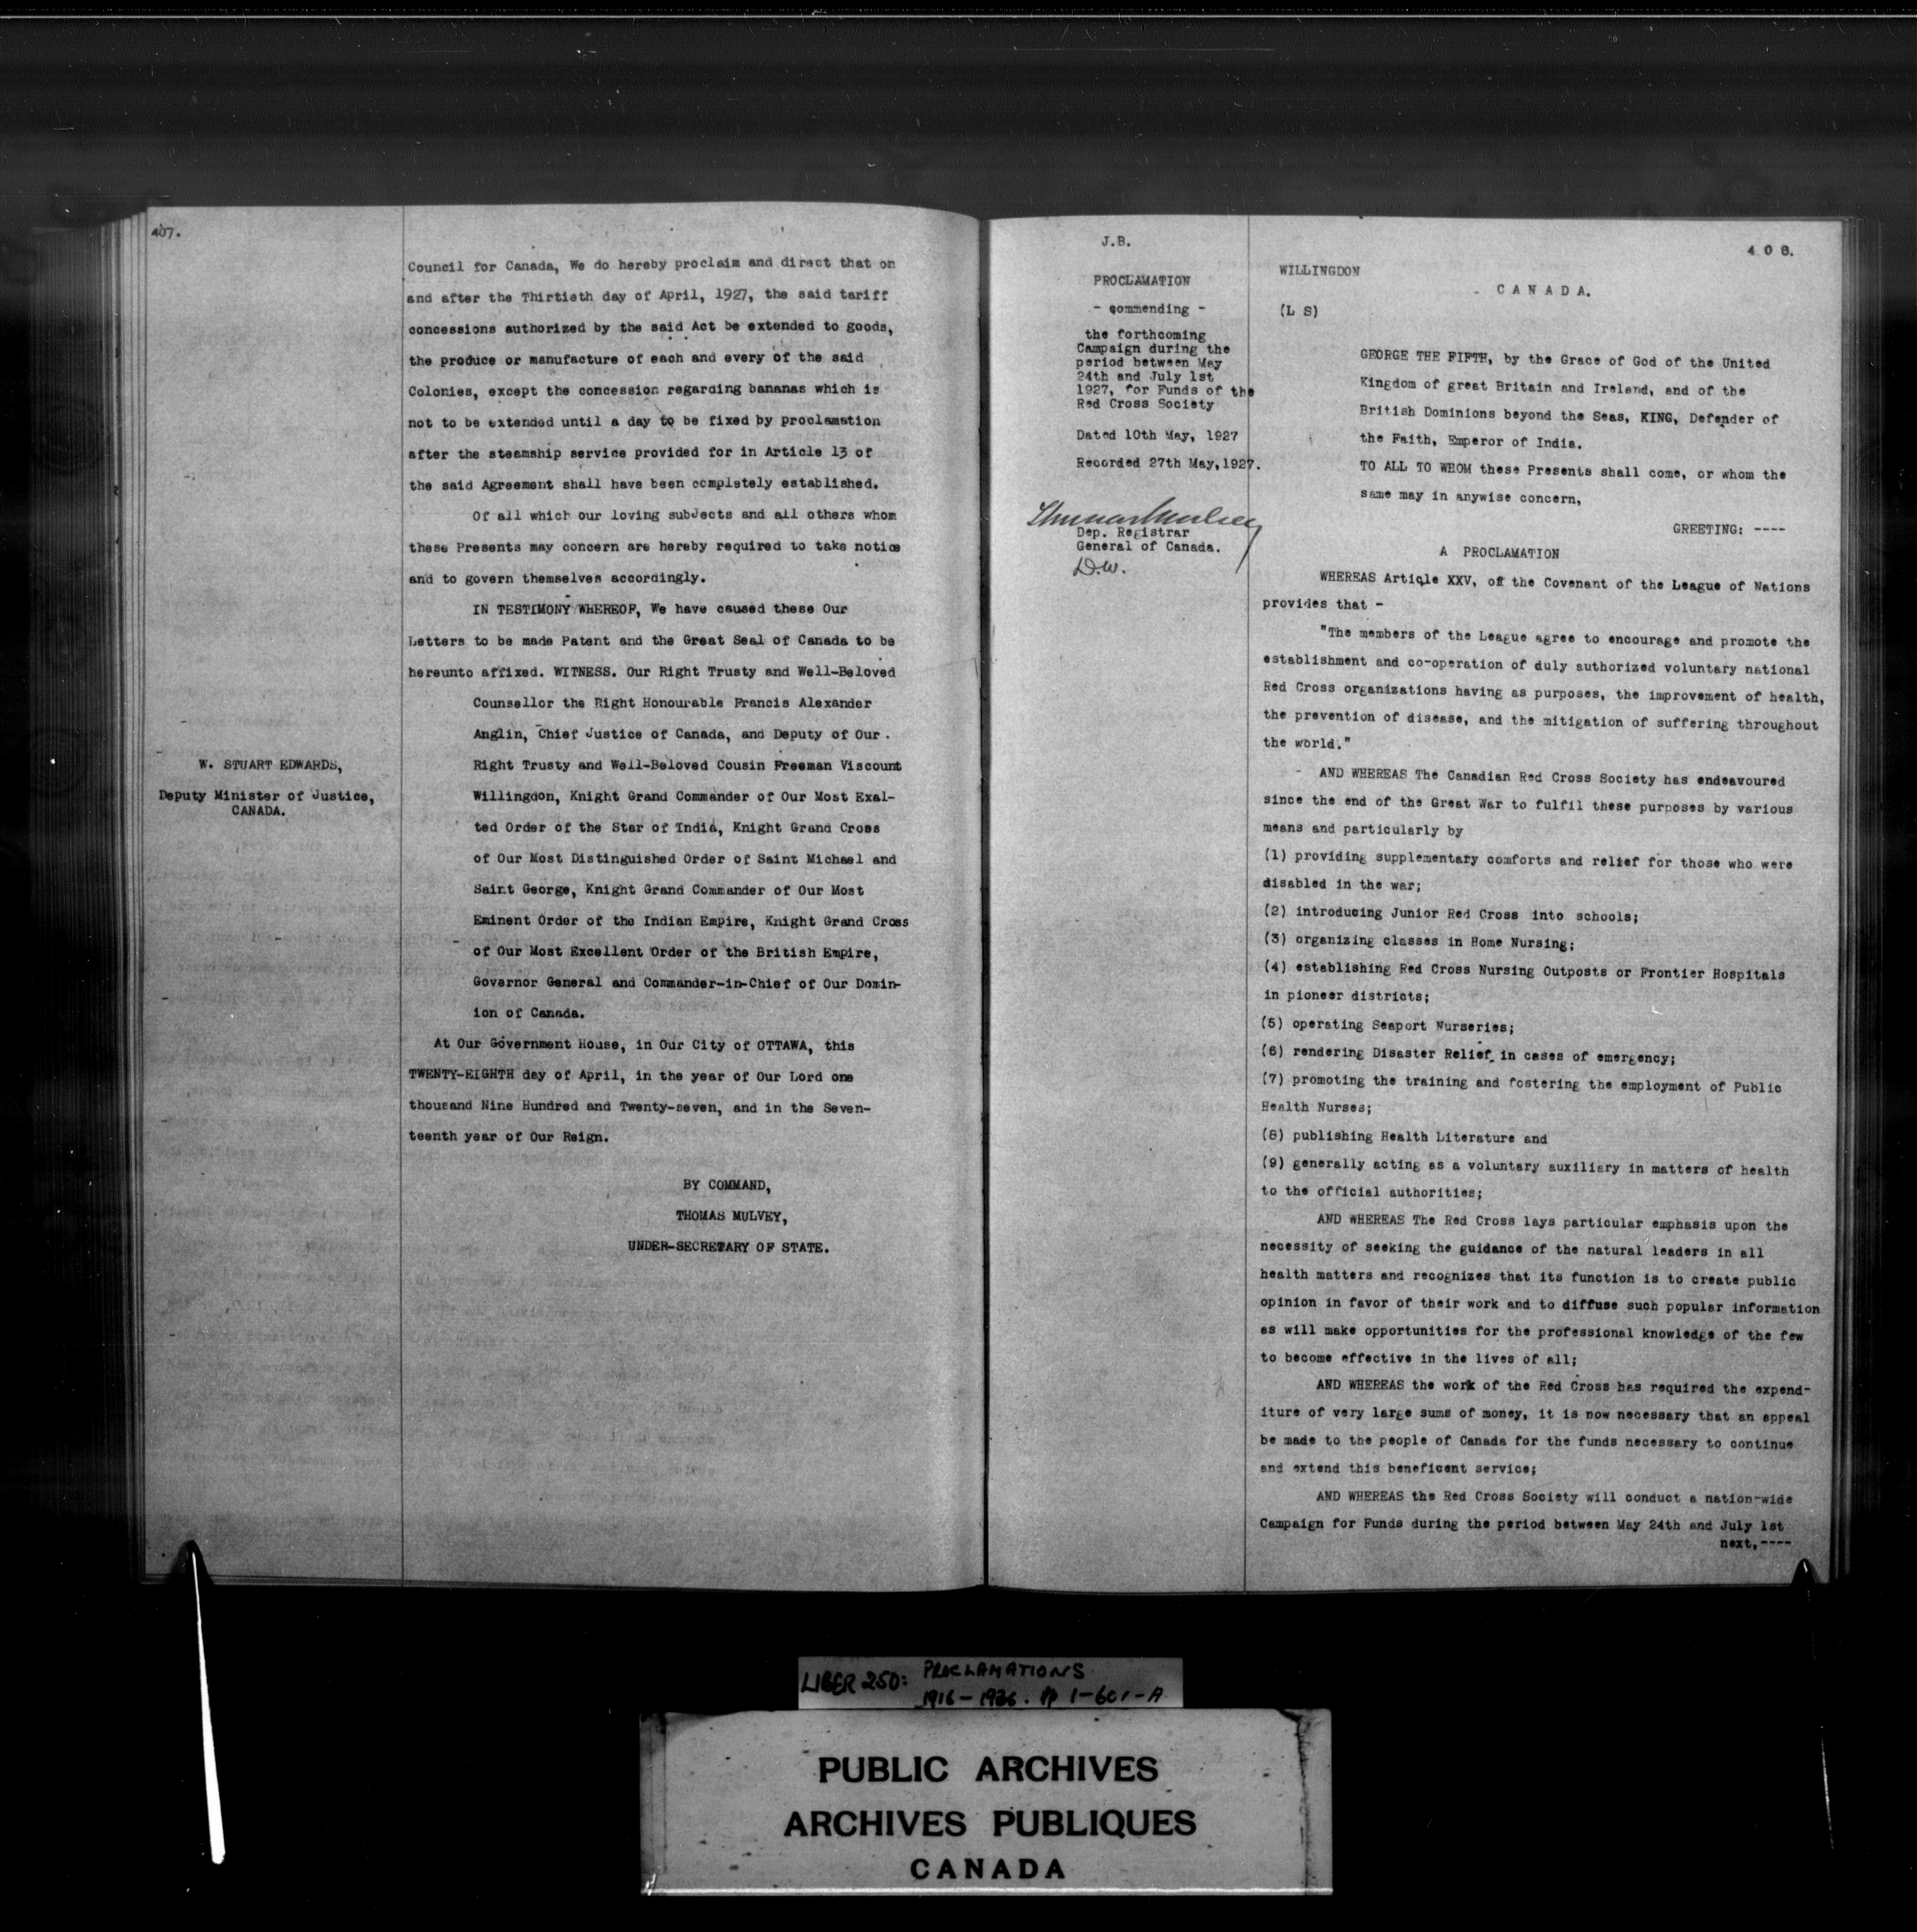 407.
Council for Canada, We do hereby proclaim and direct that on
and after the Thirtieth day of April, 1927, the said tariff
concessions authorized by the said Act be extended to goods,
the produce or manufacture of each and every of the said
Colonies, except the concession regarding bananas which is
not to be extended until a day to be fixed by proclamation
after the steamship service provided for in Article 13 of
the said Agreement shall have been completely established.
Of all which our loving subJects and all others whom
these Presents may concern are hereby required to take notice
and to govern themselves accordingly.
IN TESTIMONY WHEREOF, We have caused these Our
Letters to be made Patent and the Great Seal of Canada to be
hereunto affixed. WITNESS. Our Right Trusty and Well-Beloved
Counsellor the Right Honourable Francis Alexander
Anglin, Chief Justice of Canada, and Deputy of Our.
Right Trusty and Well-Beloved Cousin Freeman Viscount
Willingdon, Knight Grand Commander of Our Most Exal-
ted Order of the Star of India, Knight Grand Cross
of Our Most Distinguished Order of Saint Michael and
Saint George, Knight Grand Commander of Our Most
Eminent Order of the Indian Empire, Knight Grand Cross
of Our Most Excellent Order of the British Empire,
Governor General and Commander-in-Chief of Our Domin-
ion of Canada.
At Our Government House, in Our City of OTTAWA, this
TWENTY-EIGHTH day of April, in the year of Our Lord one
thousand Nine Hundred and Twenty-seven, and in the Seven-
teenth year of Our Reign.
BY COMMAND,
THOMAS MULVEY,
UNDER-SECRETARY OF STATE.
W. STUART EDWARDS,
Deputy Minister of Justice,
CANADA.
J.B.
PROCLAMATION
- commending -
the forthcoming
Campaign during the
period between May
24th and July 1st
1927, for Funds of the
Red Cross Society
Dated 10th May, 1927
Recorded 27th May,1927.
Thomas Mulvey
Dep. Registrar
General of Canada.
D.W.
408.
WILLINGDON
CANADA.
(L S)
GEORGE THE FIFTH, by the Grace of God of the United
Kingdom of great Britain and Ireland, and of the
British Dominions beyond the Seas, KING, Defender of
the Faith, Emperor of India.
TO ALL TO WHOM these Presents shall come, or whom the
same may in anywise concern,
GREETING: ----
A PROCLAMATION
WHEREAS Article XXV, of the Covenant of the League of Nations
provides that -
"The members of the League agree to encourage and promote the
establishment and co-operation of duly authorized voluntary national
Red Cross organizations having as purposes, the improvement of health,
the prevention of disease, and the mitigation of suffering throughout
the world."
AND WHEREAS The Canadian Red Cross Society has endeavoured
since the end of the Great War to fulfil these purposes by various
means and particularly by
(1) providing supplementary comforts and relief for those who were
disabled in the war;
(2) introducing Junior Red Cross into schools;
(3) organizing classes in Home Nursing;
(4) establishing Red Cross Nursing Outposts or Frontier Hospitals
in pioneer districts;
(5) operating Seaport Nurseries;
(6) rendering Disaster Relief in cases of emergency;
(7) promoting the training and fostering the employment of Public
Health Nurses;
(8) publishing Health Literature and
(9) generally acting as a voluntary auxiliary in matters of health
to the official authorities;
AND WHEREAS The Red Cross lays particular emphasis upon the
necessity of seeking the guidance of the natural leaders in all
health matters and recognizes that its function is to create public
opinion in favor of their work and to diffuse such popular information
as will make opportunities for the professional knowledge of the few
to become effective in the lives of all;
AND WHEREAS the work of the Red Cross has required the expend-
iture of very large sums of money, it is now necessary that an appeal
be made to the people of Canada for the funds necessary to continue
and extend this beneficent service;
AND WHEREAS the Red Cross Society will conduct a nation-wide
Campaign for Funds during the period between May 24th and July 1st
next,----
LIBER 250: PROCLAMATIONS
1916-1936. pp 1-601-A
PUBLIC ARCHIVES
ARCHIVES PUBLIQUES
CANADA